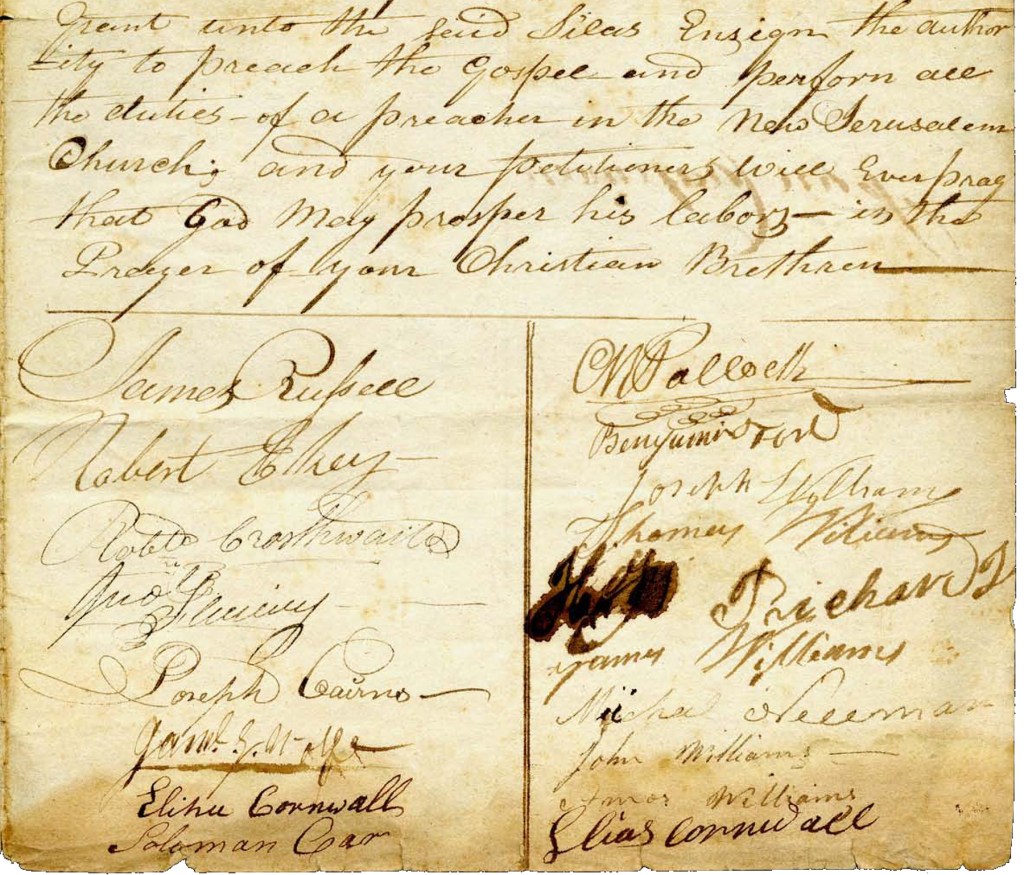 grant unto the said Silas Ensign the author
-ity to preach the Gospel and perform all
the duties - of a preacher in the New Jerusalem
Church; and your petitioners will Ever pray
that God May prosper his labors - in the
Prayer of your Christian Brethren
James Russell
Robert
Robt Crosthwaite
Jno
Joseph Cairns
Elihu Cornwall
Soloman Car
M Pollock
Benjamin Ford
Joseph Williams
Thomas Williams
Richards
James Williams
Michel
John Williams
Amos Williams
Elias Cornwall